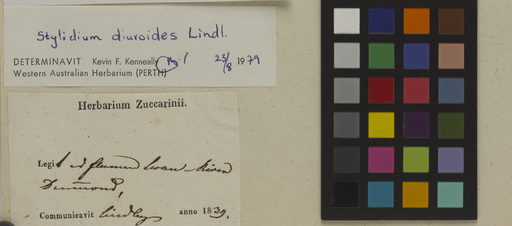 Stylidium diuroides Lindl.
DETERMINAVIT Kevin F. Kenneally 25/8 1979
Western Australian Herbarium (PERTH)
Herbarium Zuccarinii.
Legit ad flumen Swan-River
Drummond,
Communicavit Lindley anno 1839.